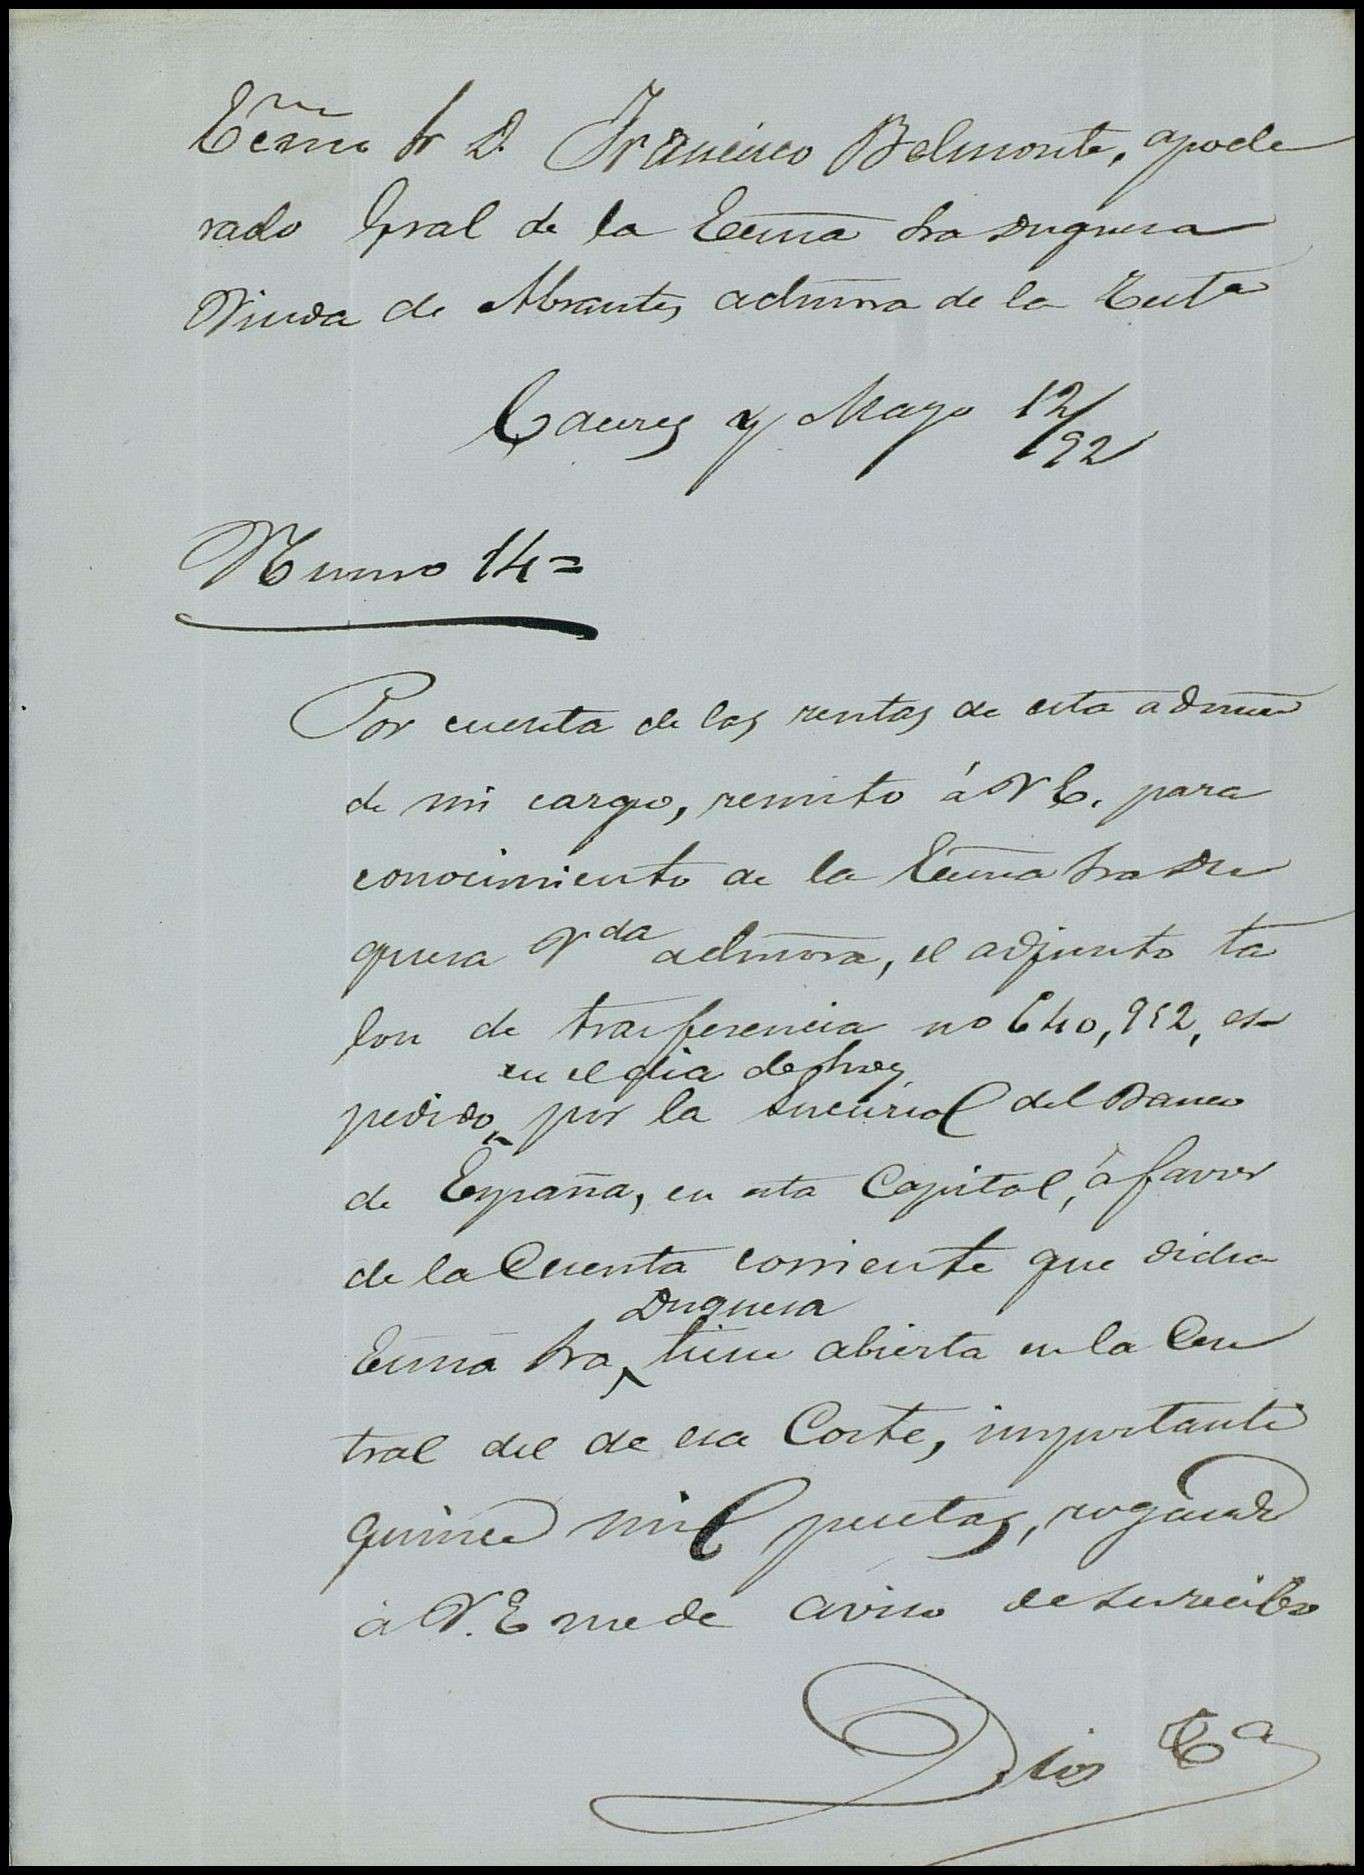 Ecmo Sr D. Francisco Belmonte, apode
rado Gral de la Ecma Sra Duquesa
Viuda de Abrantes admora de la Testa
Caceres y Mayo 12/92
Numro 14=
Por cuenta de las rentas de esta admon
de mi cargo, remito á V E. para
conocimiento de la Ecma Sra Du
quesa Vda admora, el adjunto ta
lon de trasferencia no 640,952, es-
en el dia de hoy
pedido por la sucursal del Banco
de España, en esta Capital, á favor
de la Cuenta corriente que dicha
Duquesa
Ecma Sra tiene abierta en la Cen
tral del de esa Corte, importante
quince mil pesetas, rogando
á V. E me de aviso de su recibo
Dios &a